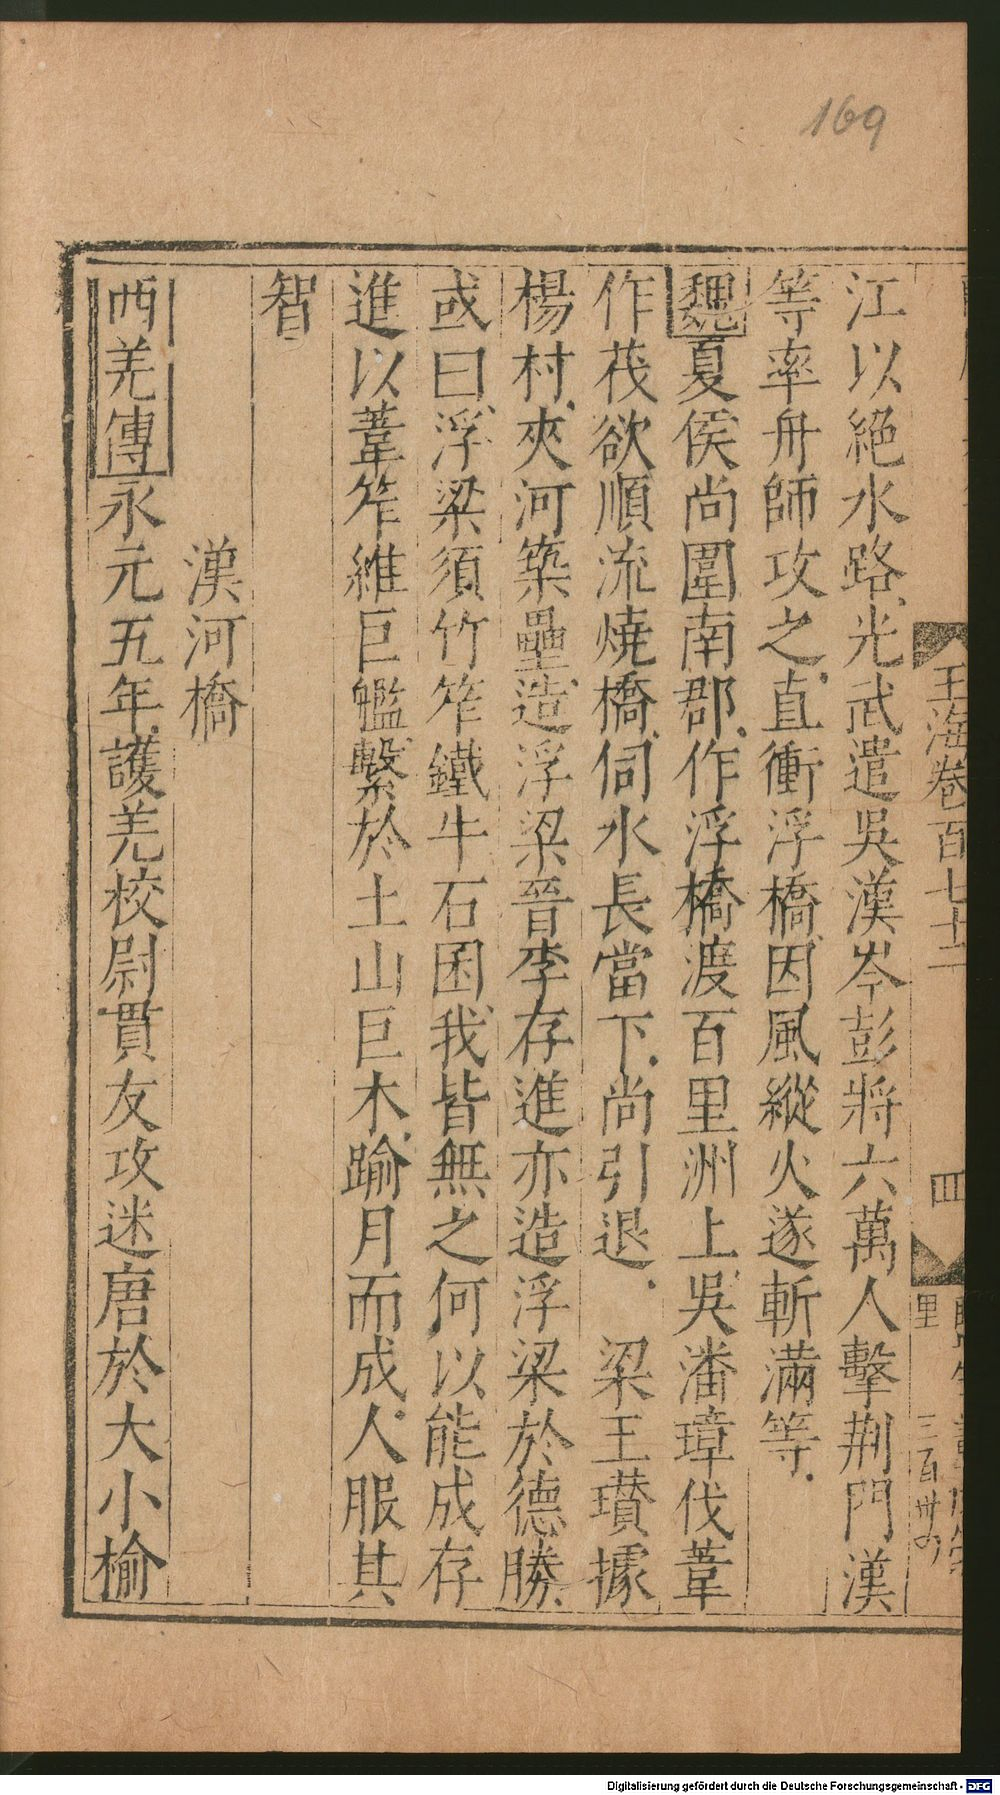 169
玉海卷百七十二
四
里
三百卅の
江以絕水路光武遣吳漢岑彭將六萬人擊荆門漢
等率舟師攻之直衝浮橋因風縱火遂斬滿等
魏夏侯尚圍南郡作浮橋渡百里洲上吳潘璋伐葦
作茷欲順流燒橋伺水長當下尚引退 梁王瓚據
楊村夾河築壘造浮梁晉李存進亦造浮梁於德勝
或曰浮梁須竹笮鐵牛石囷我皆無之何以能成存
進以葦笮維巨艦繫於土山巨木踰月而成人服其
智
漢河橋
西羌傳永元五年護羌校尉貫友攻迷唐於大小榆
Digitalisierung gefördert durch die Deutsche Forschungsgemeinschaft - DFG